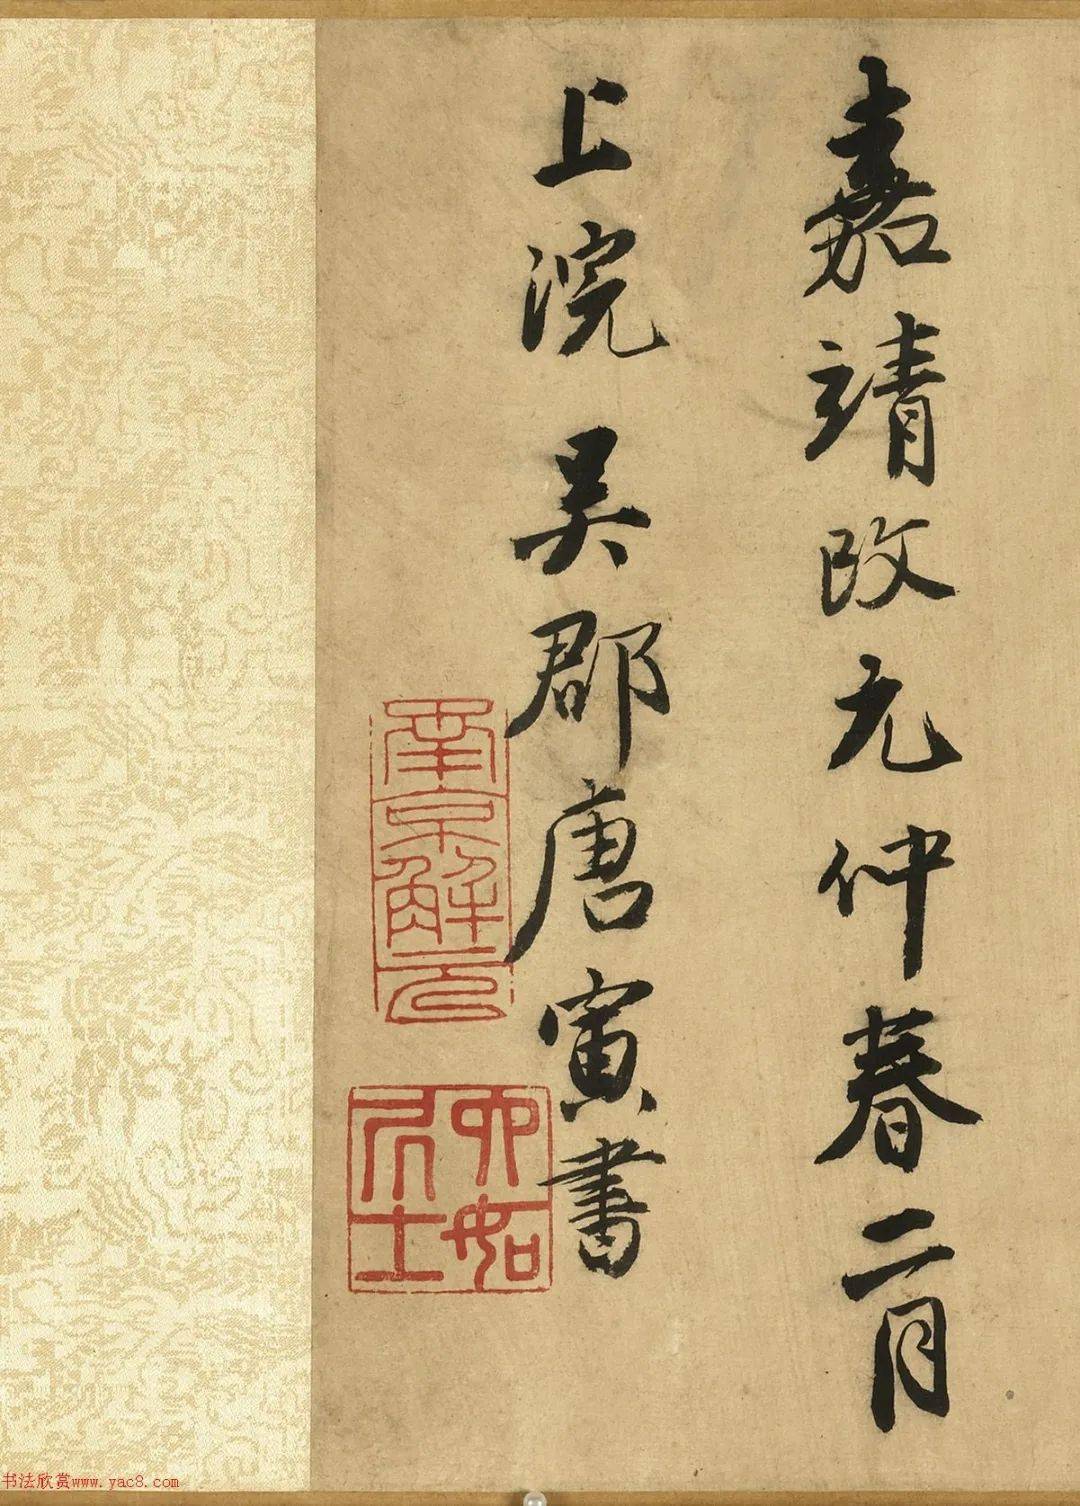 嘉靖改元仲春二月
上浣 吴郡唐寅書
南京解元
六如居士
书法欣赏www.yac8.com